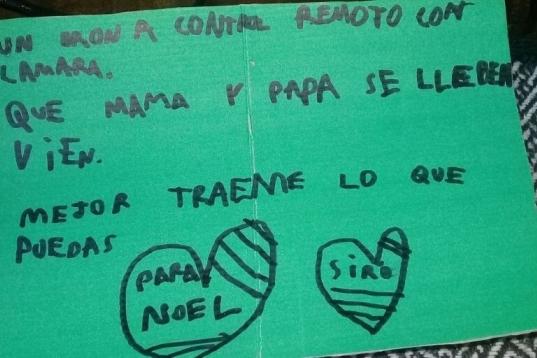 UN DRON A CONTROL REMOTO CON
CAMARA.
QUE MAMA Y PAPA SE LLEBEN
VIEN.
MEJOR TRAEME LO QUE
PUEDAS
PAPA
NOEL
SIRO